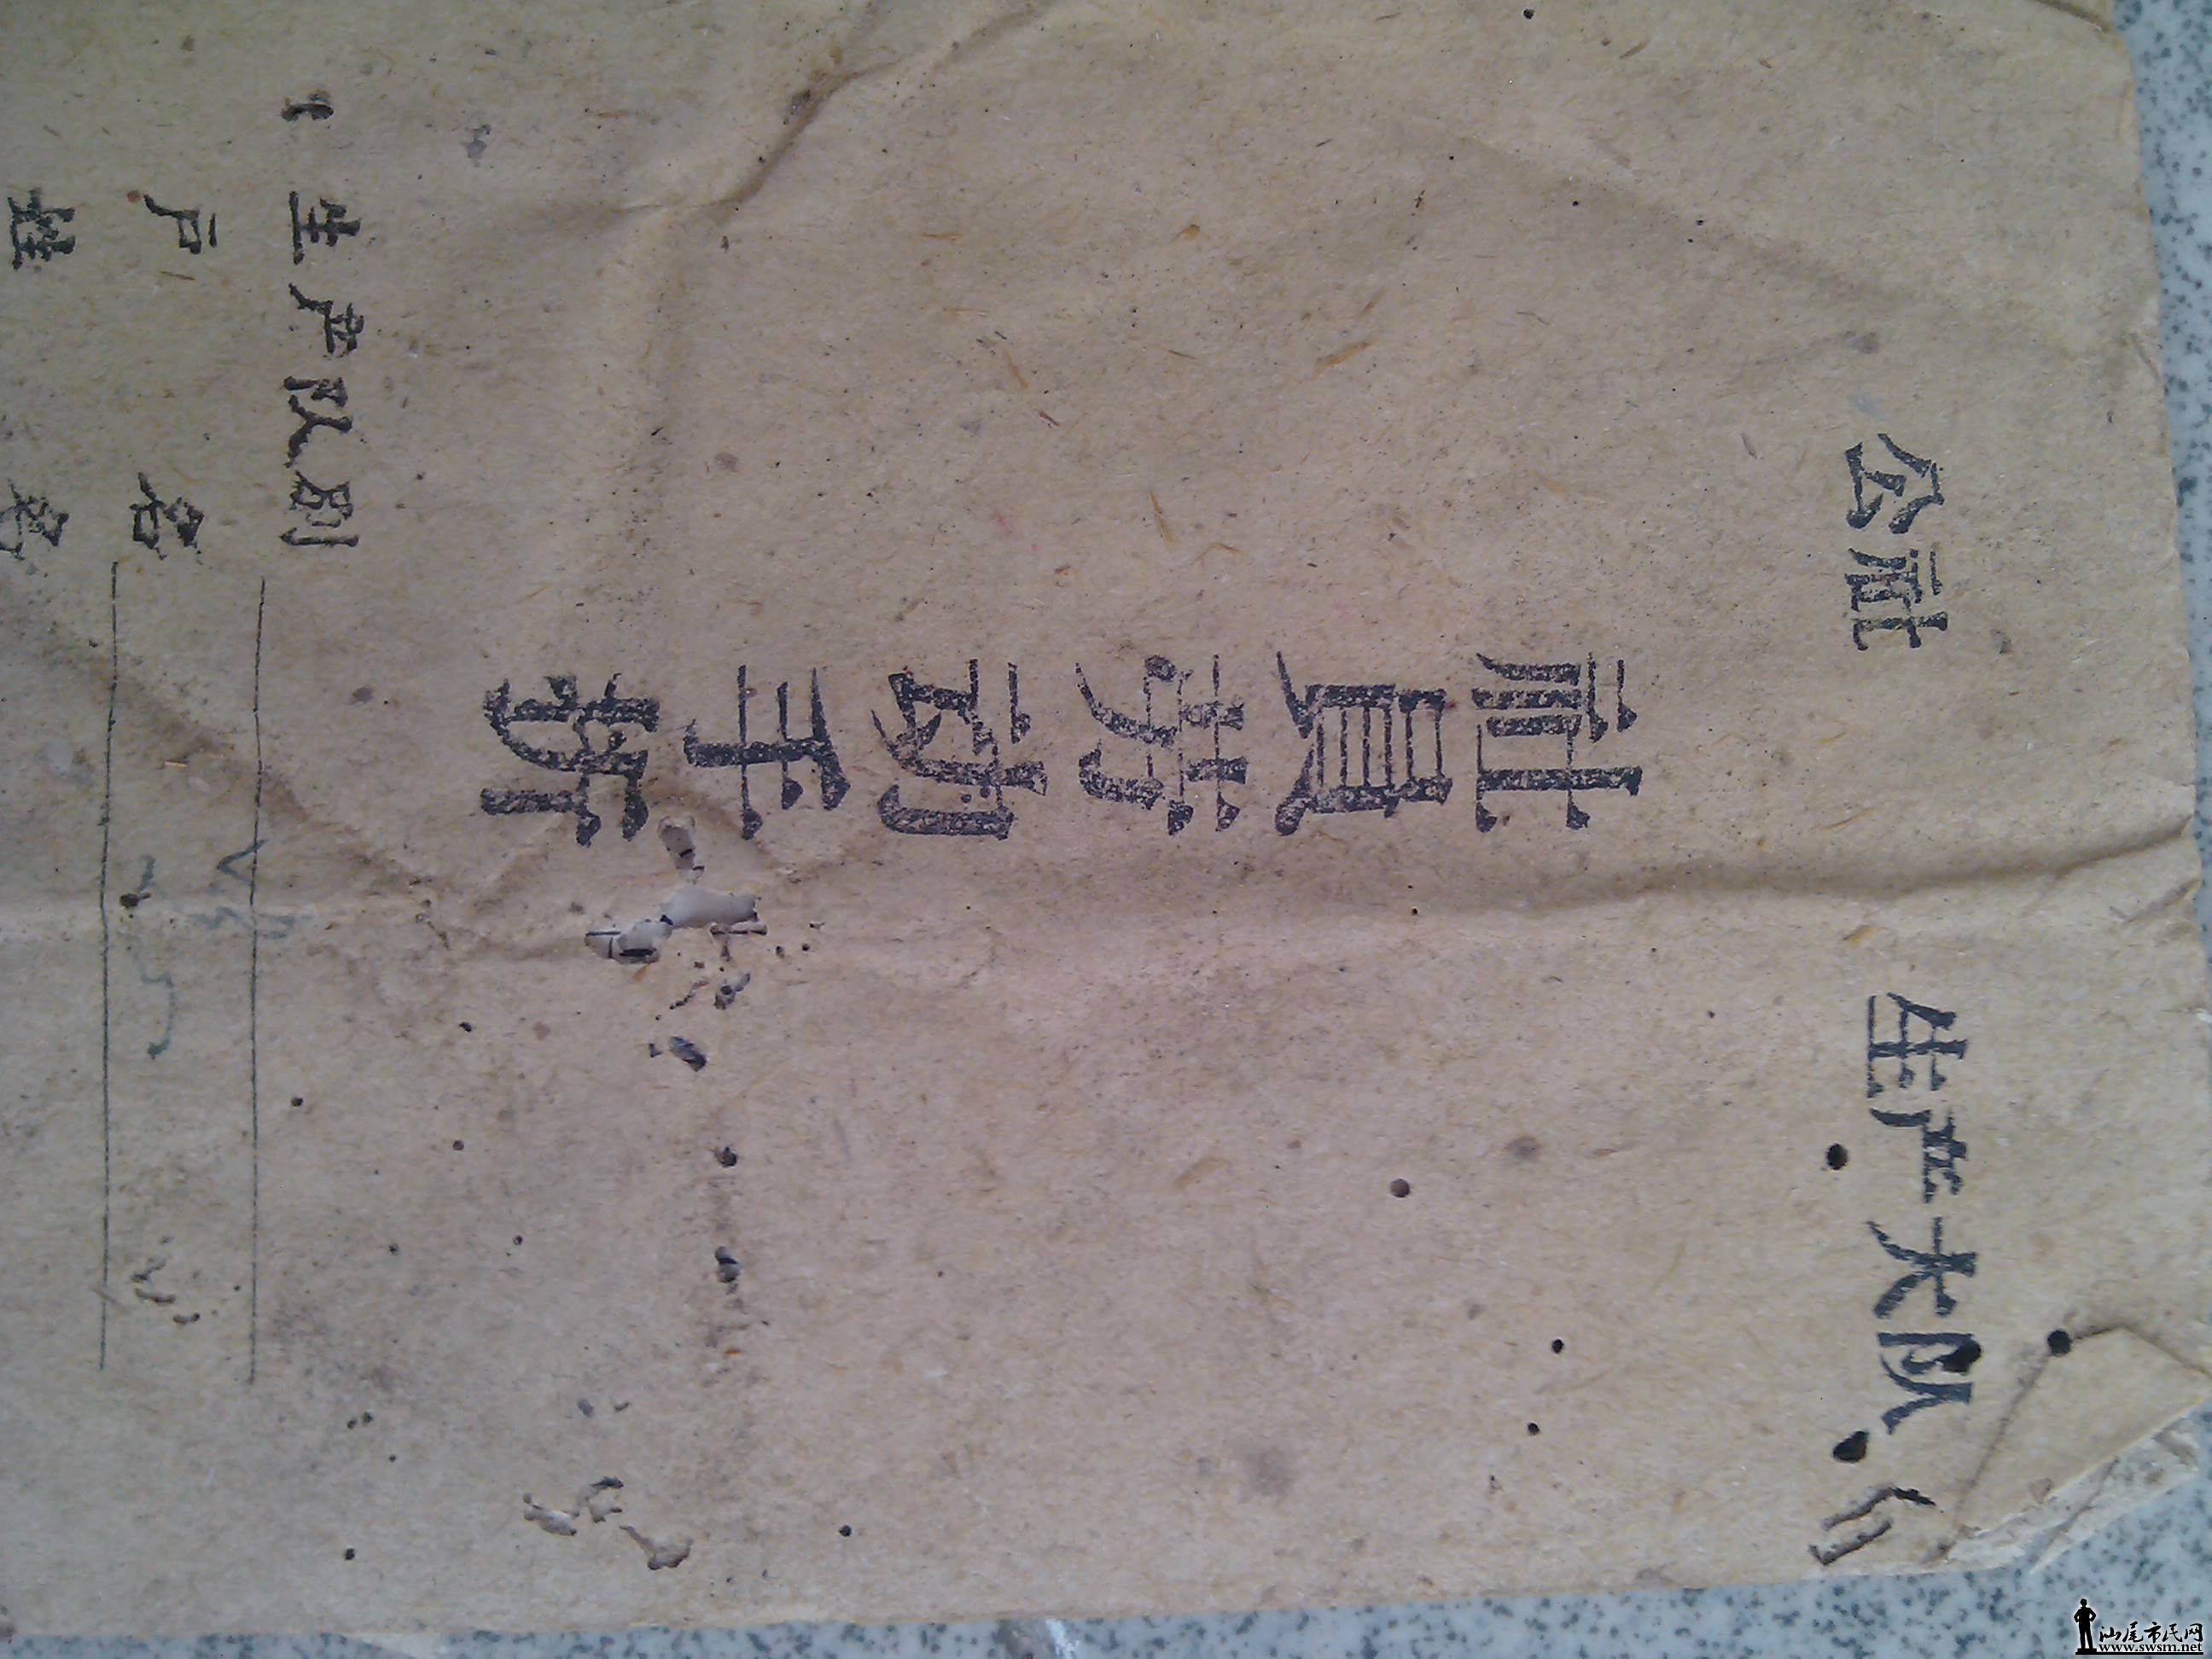 公社 生产大队
社員劳动手折
生产队别
户名
姓名
汕尾市民网
www.swsm.net